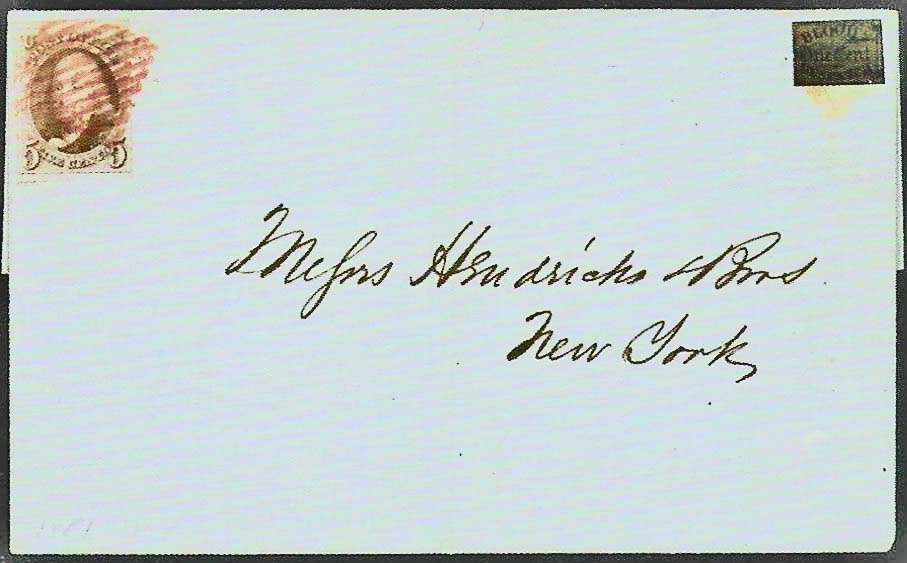 POST OFFICE
5 FIVE CENTS 5
BLOOD'S
Messrs Hendricks & Bros
New York,